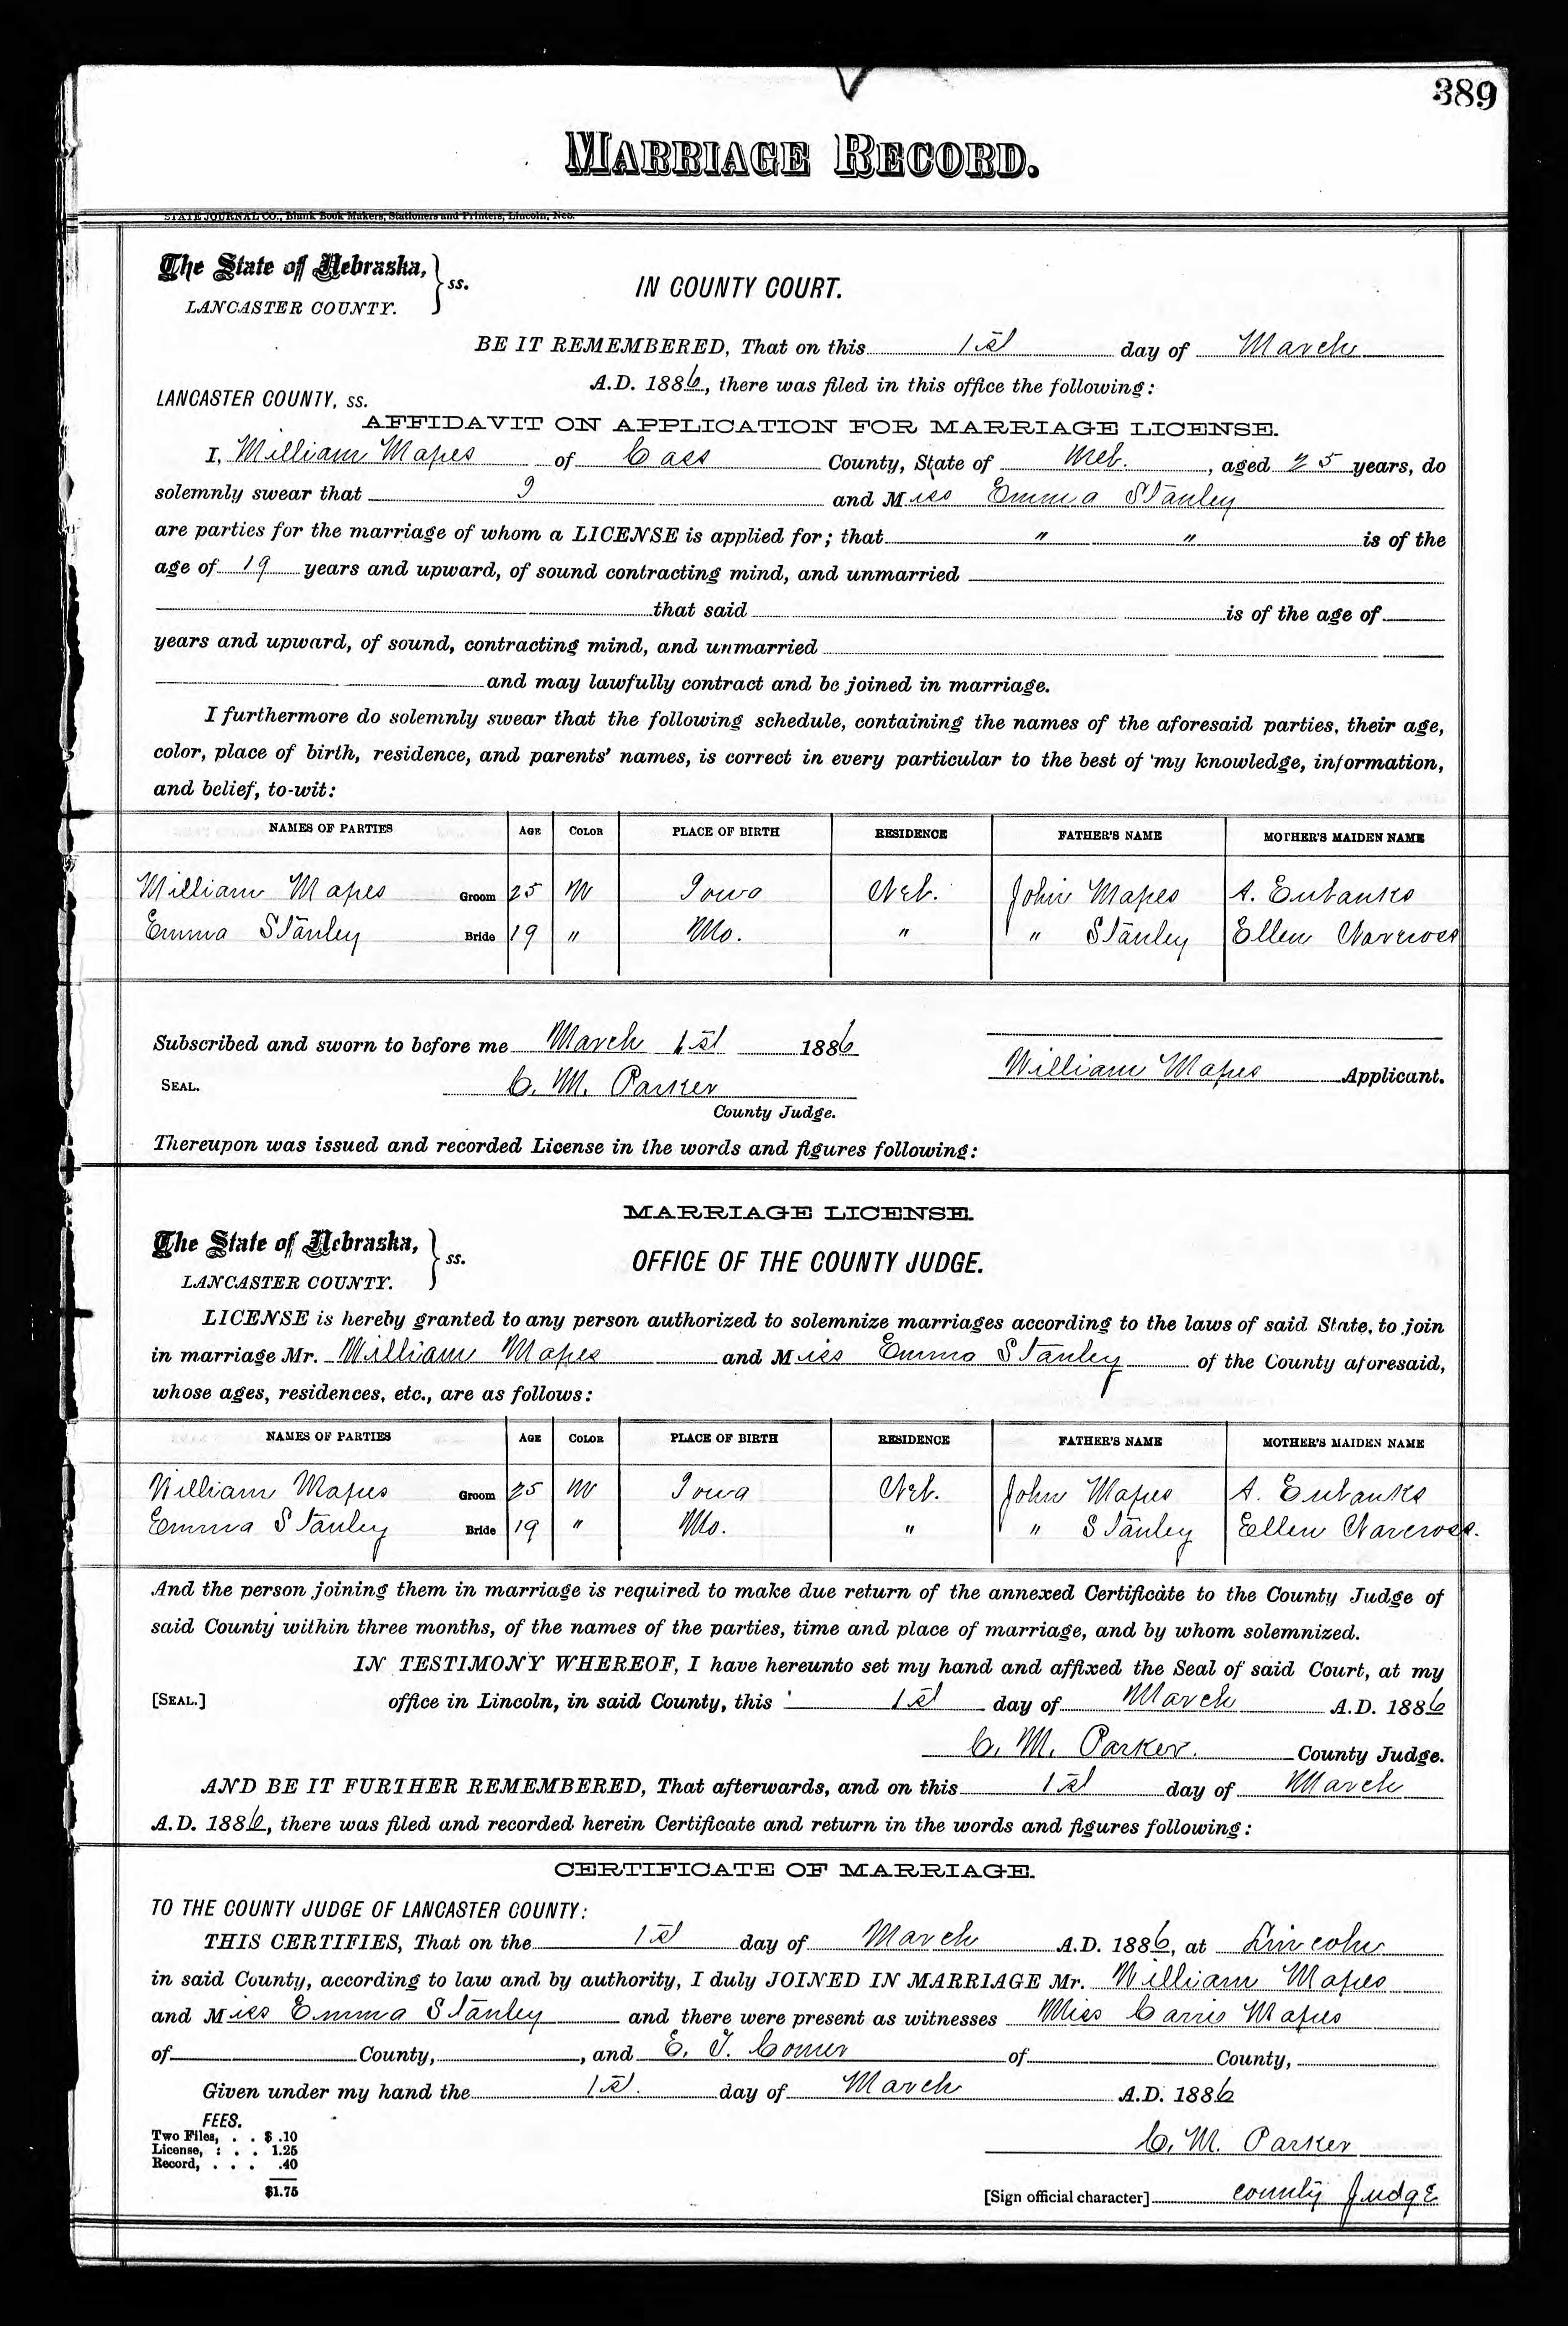 389
MARRIAGE RECORD.
STATE JOURNAL CO., Blank Book Makers, Stationers and Printers, Lincoln, Neb.
The State of Nebraska, } ss.
LANCASTER COUNTY.
IN COUNTY COURT.
BE IT REMEMBERED, That on this 1st day of March
A.D. 1886, there was filed in this office the following:
LANCASTER COUNTY, ss.
AFFIDAVIT ON APPLICATION FOR MARRIAGE LICENSE.
I, William Mapes of Cass County, State of Neb., aged 25 years, do
solemnly swear that I and Miss Emma Stanley
are parties for the marriage of whom a LICENSE is applied for; that " " is of the
age of 19 years and upward, of sound contracting mind, and unmarried
that said is of the age of
years and upward, of sound, contracting mind, and unmarried
and may lawfully contract and be joined in marriage.
I furthermore do solemnly swear that the following schedule, containing the names of the aforesaid parties, their age,
color, place of birth, residence, and parents' names, is correct in every particular to the best of my knowledge, information,
and belief, to-wit:
NAMES OF PARTIES AGE COLOR PLACE OF BIRTH RESIDENCE FATHER'S NAME MOTHER'S MAIDEN NAME
William Mapes Groom 25 W Iowa Neb. John Mapes A. Eubanks
Emma Stanley Bride 19 " Mo. " " Stanley Ellen Narcross
Subscribed and sworn to before me March 1st 1886
William Mapes Applicant.
SEAL. C. M. Parker
County Judge.
Thereupon was issued and recorded License in the words and figures following:
MARRIAGE LICENSE.
The State of Nebraska, } ss.
LANCASTER COUNTY.
OFFICE OF THE COUNTY JUDGE.
LICENSE is hereby granted to any person authorized to solemnize marriages according to the laws of said State, to join
in marriage Mr. William Mapes and Miss Emma Stanley of the County aforesaid,
whose ages, residences, etc., are as follows:
NAMES OF PARTIES AGE COLOR PLACE OF BIRTH RESIDENCE FATHER'S NAME MOTHER'S MAIDEN NAME
William Mapes Groom 25 W Iowa Neb. John Mapes A. Eubanks
Emma Stanley Bride 19 " Mo. " " Stanley Ellen Narcross.
And the person joining them in marriage is required to make due return of the annexed Certificate to the County Judge of
said County within three months, of the names of the parties, time and place of marriage, and by whom solemnized.
IN TESTIMONY WHEREOF, I have hereunto set my hand and affixed the Seal of said Court, at my
[SEAL.] office in Lincoln, in said County, this 1st day of March A.D. 1886
C. M. Parker. County Judge.
AND BE IT FURTHER REMEMBERED, That afterwards, and on this 1st day of March
A.D. 1886, there was filed and recorded herein Certificate and return in the words and figures following:
CERTIFICATE OF MARRIAGE.
TO THE COUNTY JUDGE OF LANCASTER COUNTY:
THIS CERTIFIES, That on the 1st day of March A.D. 1886, at Lincoln
in said County, according to law and by authority, I duly JOINED IN MARRIAGE Mr. William Mapes
and Miss Emma Stanley and there were present as witnesses Miss Carrie Mapes
of County, , and E. T. Comer of County,
Given under my hand the 1st. day of March A.D. 1886
FEES.
Two Files, . . $ .10
License, : . . 1.25
Record, . . . .40
$1.75
C. M. Parker
[Sign official character] county Judge